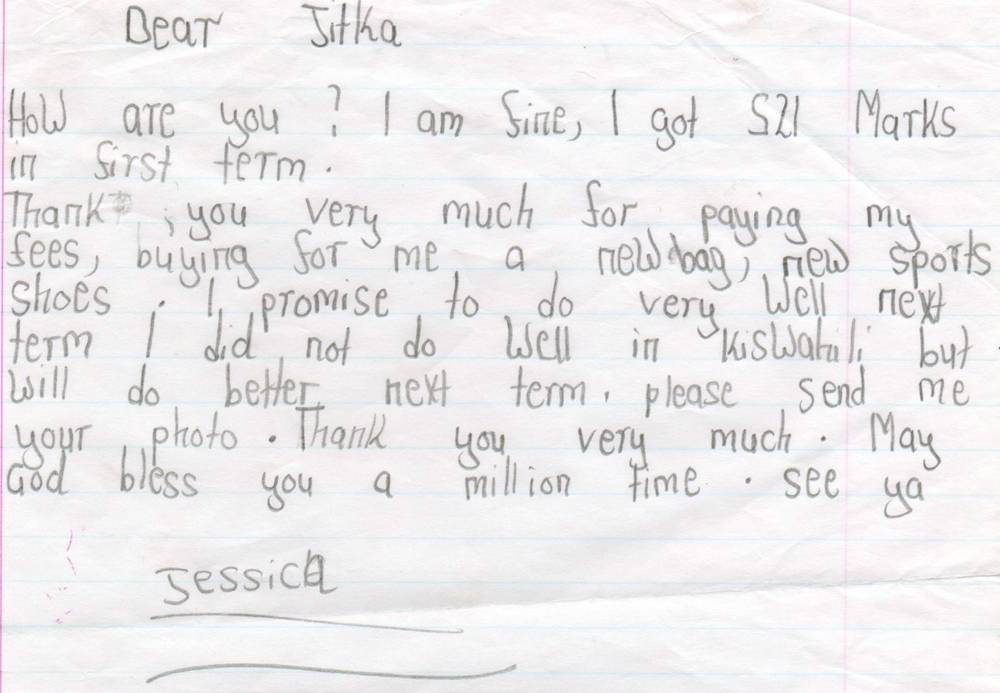 Dear Jitka
How are you ? I am fine, I got 521 Marks
in first term.
Thank you very much for paying my
fees, buying for me a new bag, new sports
shoes . I promise to do very well next
term I did not do well in kiswahili but
will do better next term. please send me
your photo . Thank you very much . May
God bless you a million time . see ya
Jessica